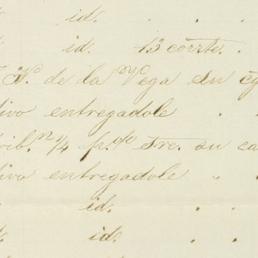 id. . . .
id. 13 corrte. .
N.º de la Vega su
ivo entregadole . .
rib. n/4 p. % Fre. su ca
ivo entregadole " .
id. . .
id. . .